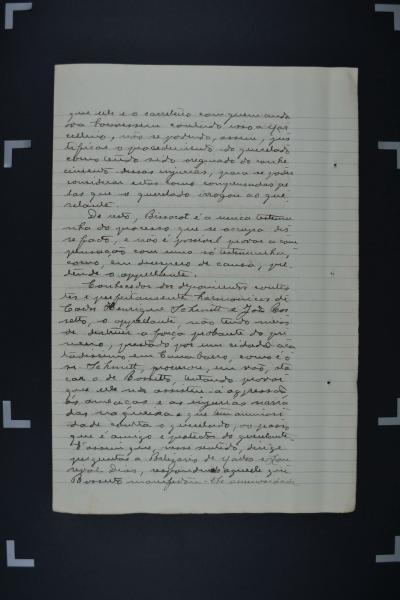 que elle e o carreteiro com quem anda
va houvessem contado isso a Mar
cellino, não se podendo, assim, jus
tificar o procedimento do querelado
como tendo sido originado do conhe
cimento dessas injurias, para se poder
considerar estas como compensadas pe
las que o querelado irrogou ao que
relante.
De resto, Bissacot é a unica testemu
nha do processo que se occupa des
se facto, e não é possivel provar a com
pensação com uma só testemunha,
como, em desespero de causa, pre
tende o appellante.
Conhecedor dos depoimentos contes
tes e perfeitamente harmonicos de
Carlos Henrique Schmitt e João Bos
setto, o appellante, não tendo meios
de destruir a força probante do pri
meiro, prestado por um cidadão aca
tadissimo em como é o
sr. Schmitt, procurou, em vão, ata
car o de Bossetto, tentando provar
que elle não assistiu á aggressão,
ás ameaças e as injurias narra
das na queixa e que tem animosi
dade contra o querelado, ao passo
que é amigo e protector do querelante.
É assim que, nesse sentido, dirige
perguntas a Belizario de e
Dias, respondendo aquelle que
Bossetto manifestou-lhe animosidade